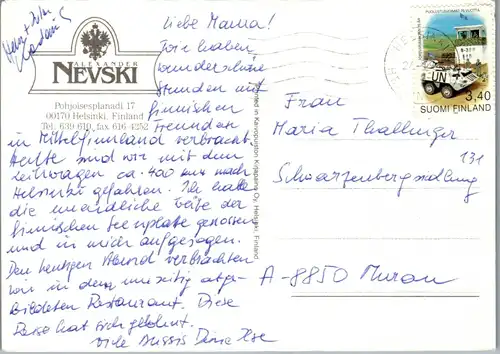 Liebe Mama!
Wir haben
wunderschöne
Stunden mit
finnischen
Freunden
in Mittelfinnland verbracht.
Heute sind wir mit dem
Leihwagen ca. 400 km nach
Helsinki gefahren. Ich hatte
die unendliche Weite der
finnischen Seenplatte genossen
und in mich aufgesogen.
Den heutigen Abend verbrachten
wir in dem umseitig abge-
bildeten Restaurant. Diese
Reise hat sich gelohnt.
Viele Bussis Deine Ilse
ALEXANDER
NEVSKI
Pohjoisesplanadi 17
00170 Helsinki, Finland
Tel. 639 610, fax 616 4252
Printed in Kaivopuiston Kirjapaino Oy, Helsinki, Finland
UN
3,40
SUOMI FINLAND
Frau
Maria Thallinger
131
Schwarzenbergsiedlung
A-8850 Murau